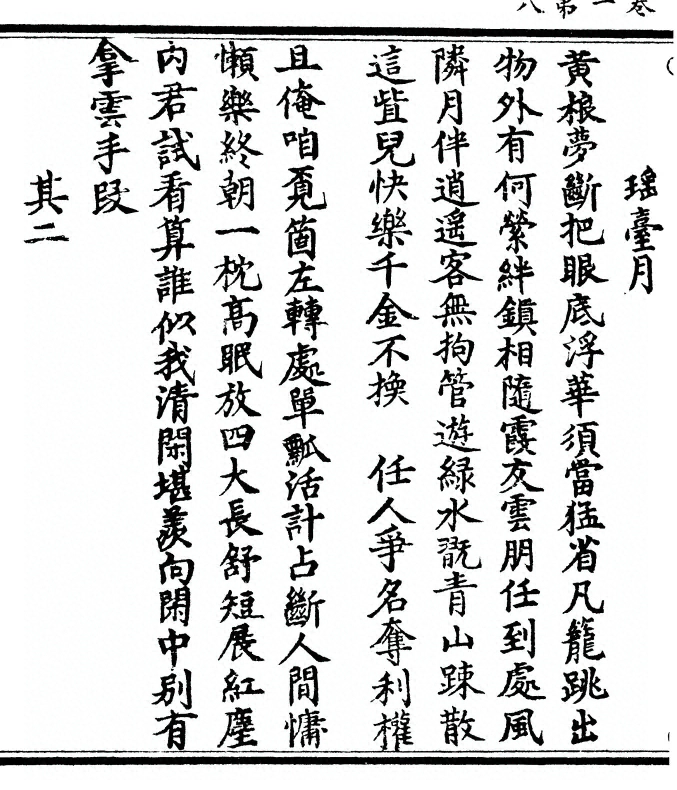 瑤臺月
黄粮夢斷把眼底浮華須當猛省凡籠跳出
物外有何縈絆鎮相隨霞友雲朋任到處風
隣月伴逍遥客無拘管遊緑水翫青山踈散
這呰兒快樂千金不換　任人爭名奪利權
且俺咱覔箇左轉處單瓢活計占斷人間慵
懶樂終朝一枕高眠放四大長舒短展紅塵
内君試看算誰似我清閑堪羨向閑中别有
拿雲手段
其二